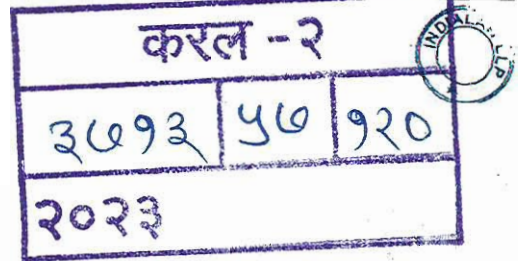 करल - २
३७१३ ५७ १२०
२०२३
INDIALAW LLP